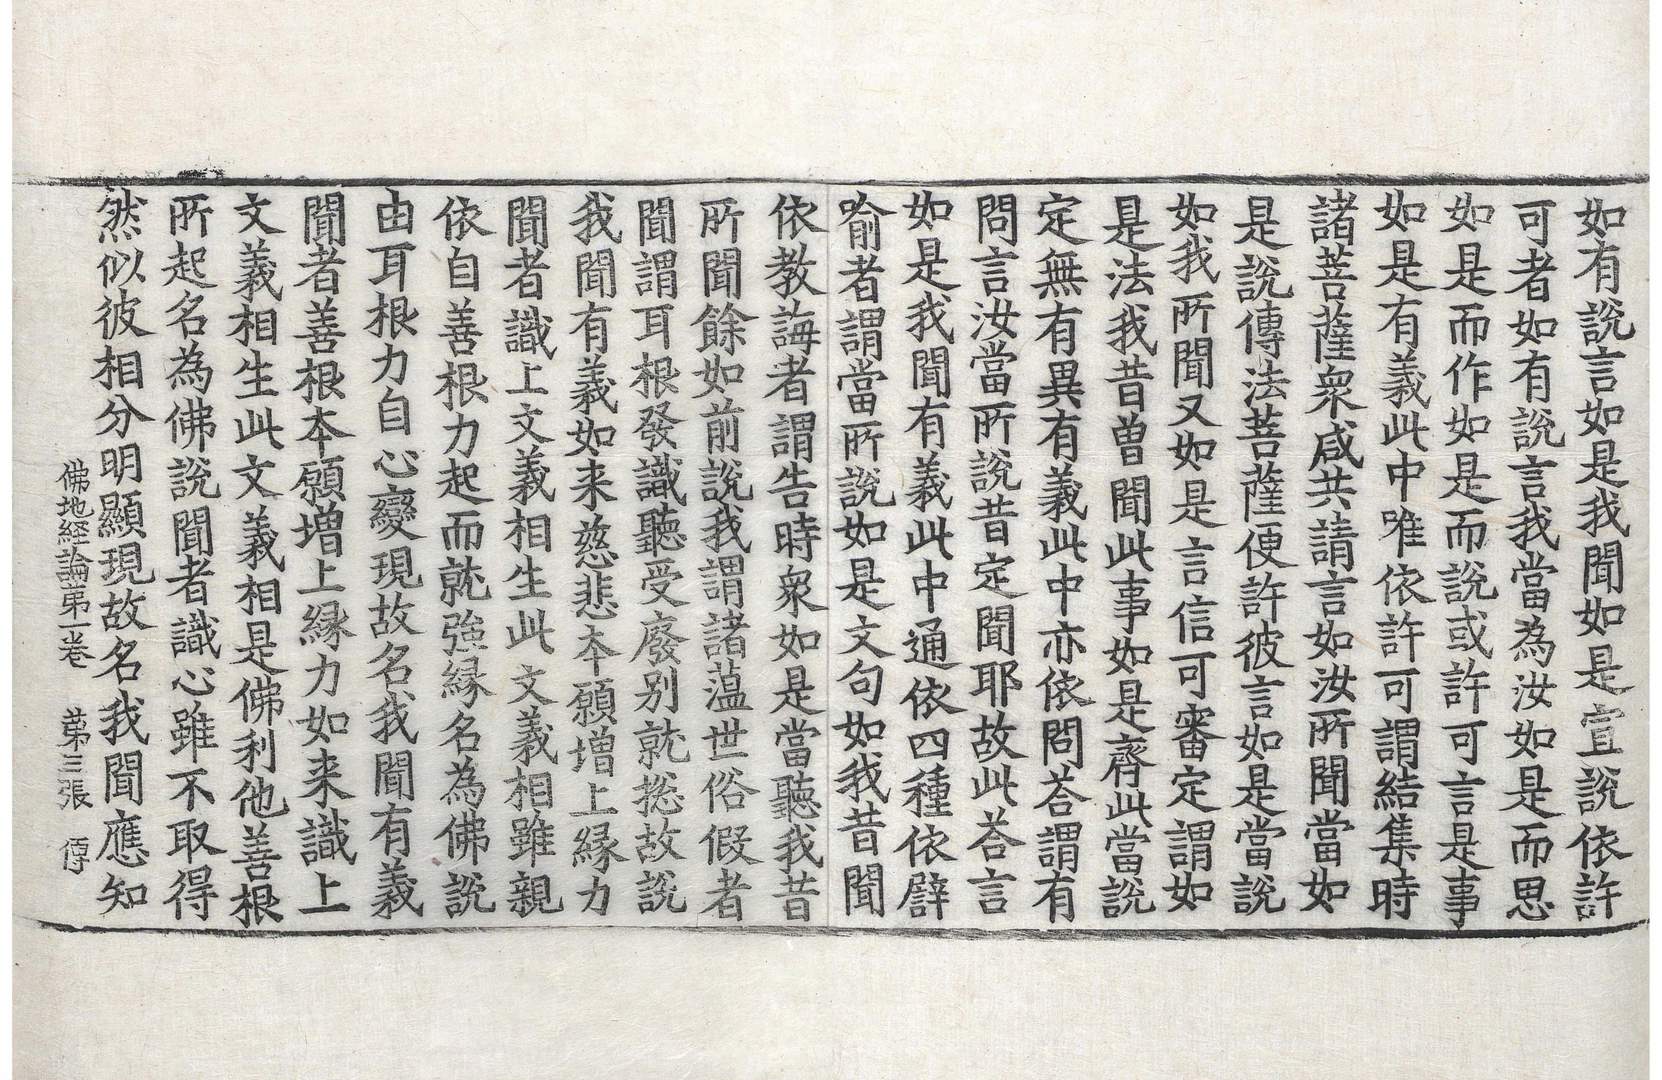 如有說言如是我聞如是宣說依許
可者如有說言我當為汝如是而思
如是而作如是而說或許可言是事
如是有義此中唯依許可謂結集時
諸菩薩衆咸共請言如汝所聞當如
是說傳法菩薩便許彼言如是當說
如我所聞又如是言信可審定謂如
是法我昔曾聞此事如是齊此當說
定無有異有義此中亦依問荅謂有
問言汝當所說昔定聞耶故此荅言
如是我聞有義此中通依四種依譬
喻者謂當所說如是文句如我昔聞
依教誨者謂告時衆如是當聽我昔
所聞餘如前說我謂諸薀世俗假者
聞謂耳根發識聽受廢別就捴故說
我聞有義如来慈悲本願增上緣力
聞者識上文義相生此文義相雖親
依自善根力起而就強緣名為佛說
由耳根力自心變現故名我聞有義
聞者善根本願增上緣力如来識上
文義相生此文義相是佛利他善根
所起名為佛說聞者識心雖不取得
然似彼相分明顯現故名我聞應知
佛地經論第一卷　第三張　傅